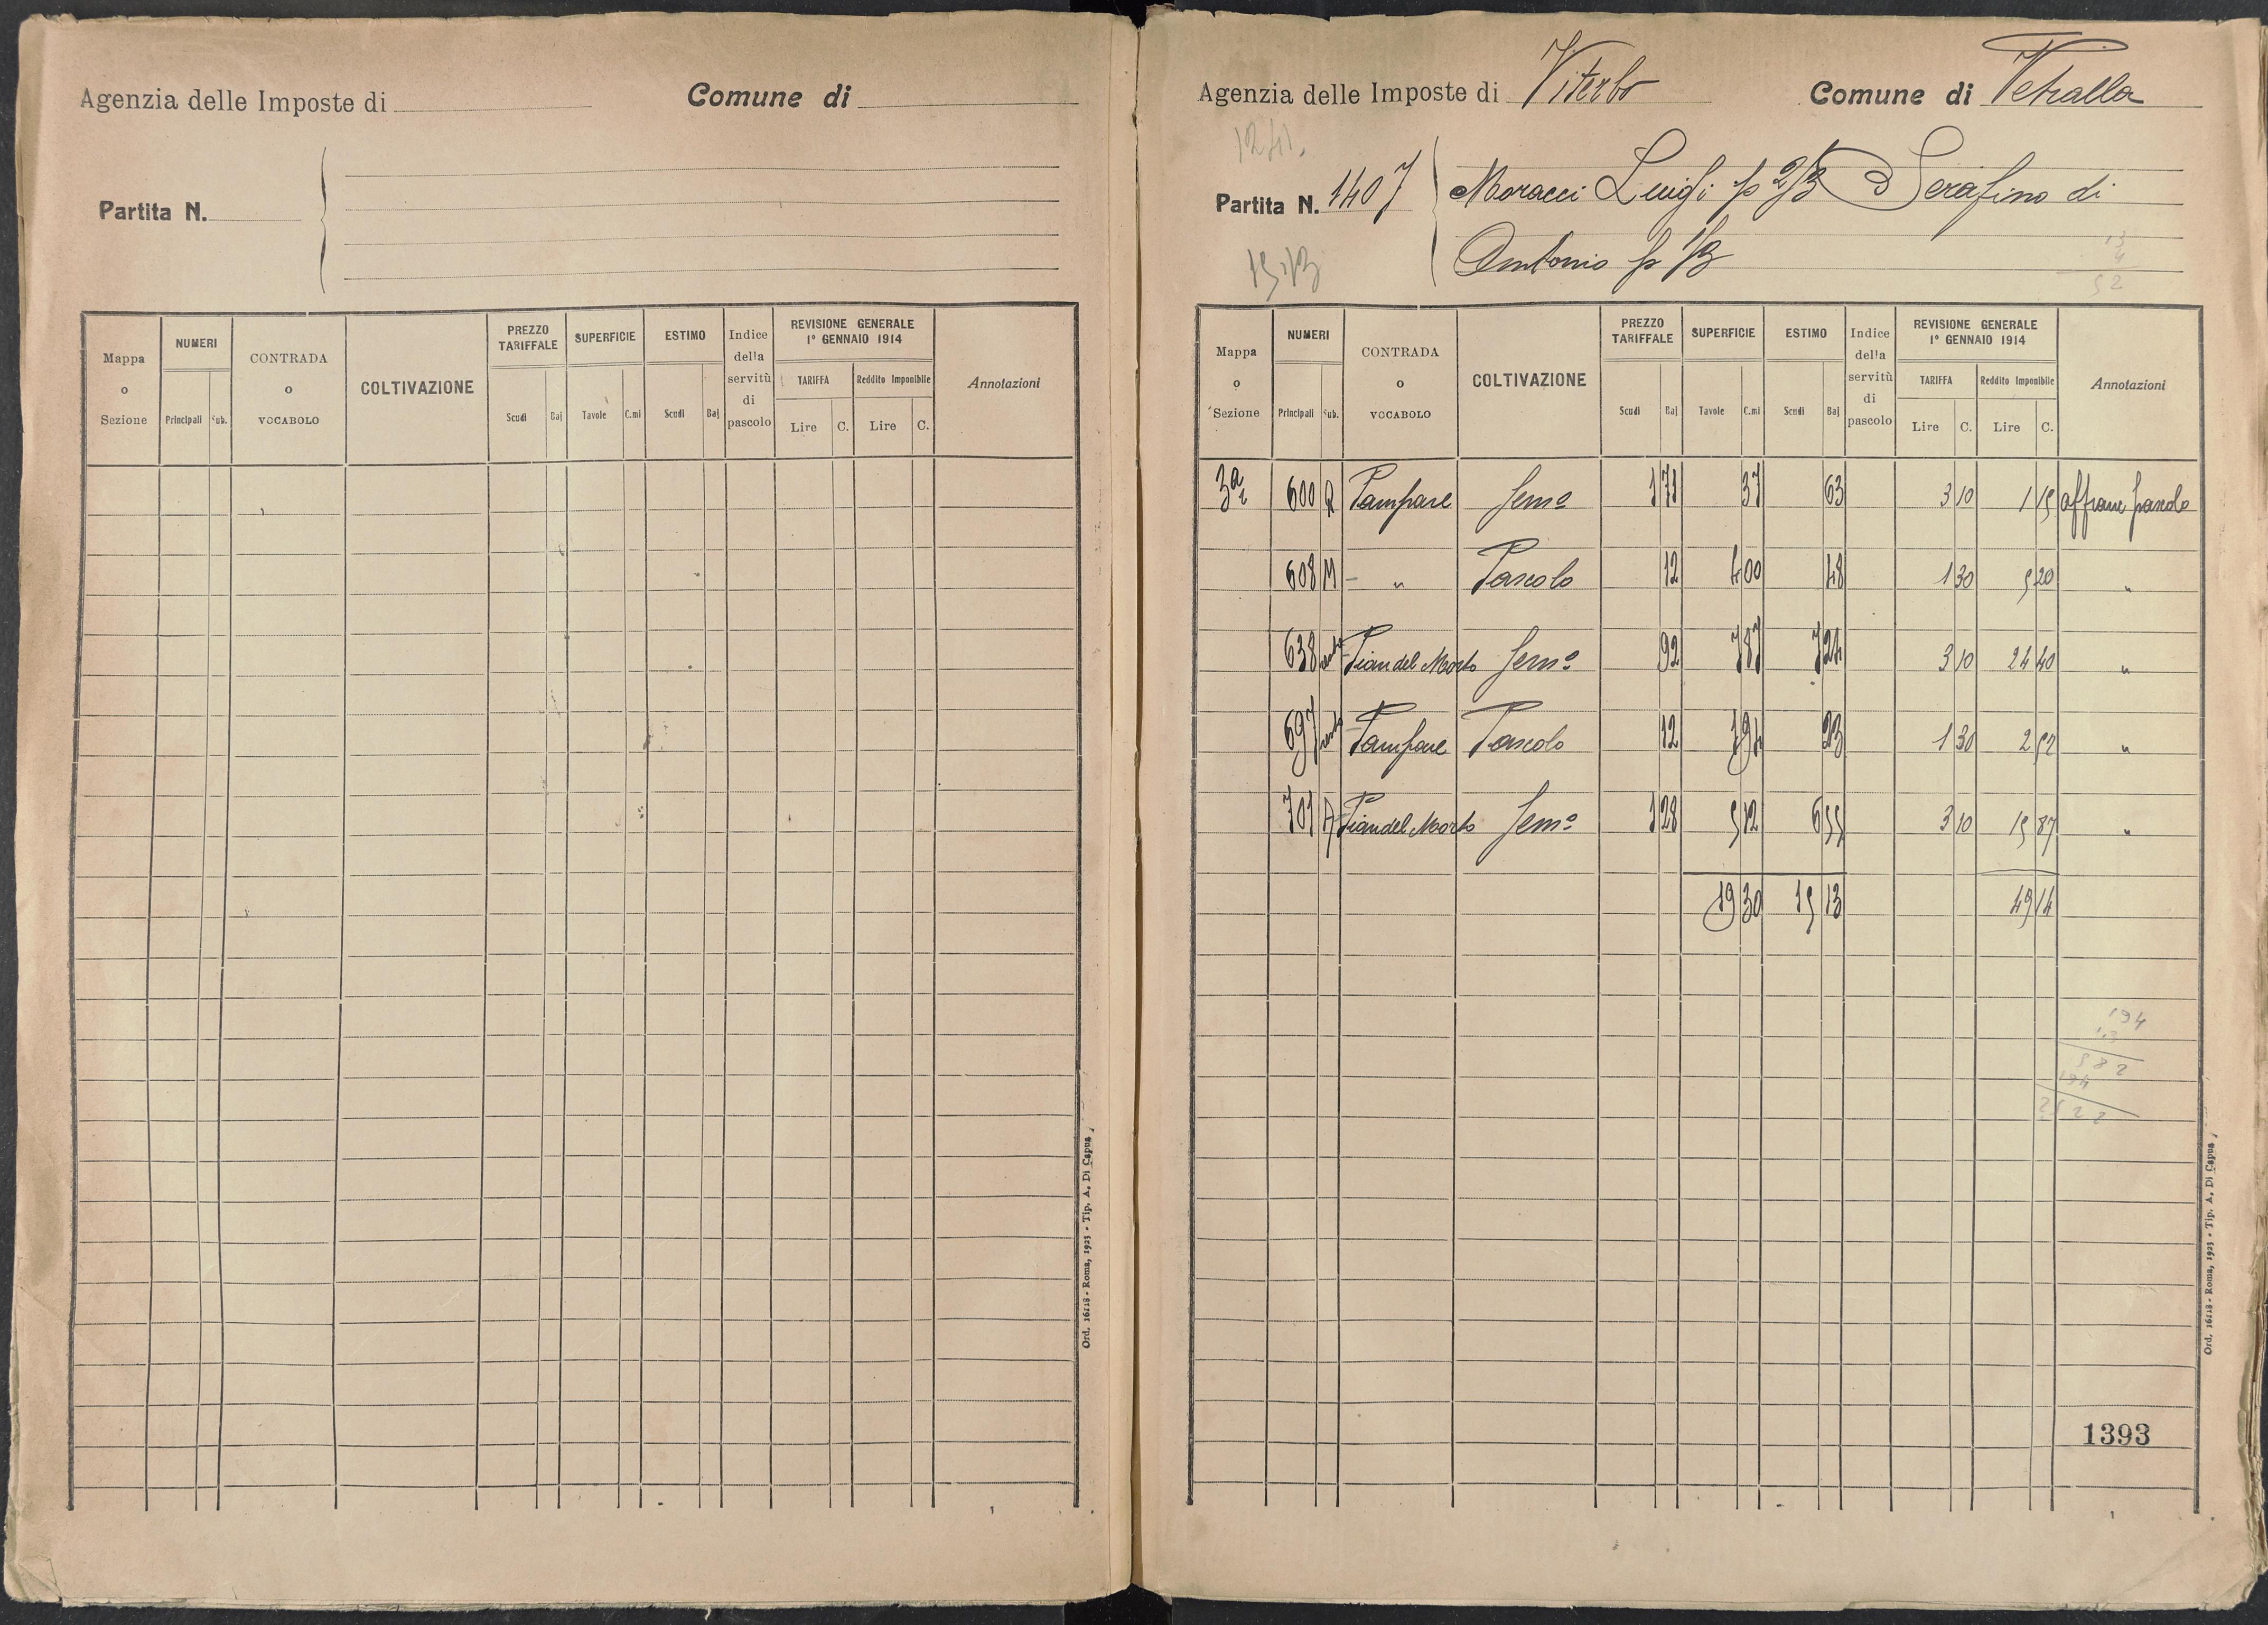 Agenzia delle Imposte di
Comune di
Partita N.
Mappa o Sezione
NUMERI
Principali Sub.
CONTRADA o VOCABOLO
COLTIVAZIONE
PREZZO TARIFFALE
Scudi Baj
SUPERFICIE
Tavole C.mi
ESTIMO
Scudi Baj
Indice della servitù di pascolo
REVISIONE GENERALE
1° GENNAIO 1914
TARIFFA Reddito Imponibile
Lire C. Lire C.
Annotazioni
Ord. 16118 - Roma, 1923 - Tip. A. Di Capua
Agenzia delle Imposte di Viterbo Comune di Vetralla
Partita N. 1407
Moracci Luigi p 2/3 D Serafino di
Antonio p 1/3
Mappa o Sezione
NUMERI
Principali Sub.
CONTRADA o VOCABOLO
COLTIVAZIONE
PREZZO TARIFFALE
Scudi Baj
SUPERFICIE
Tavole C.mi
ESTIMO
Scudi Baj
Indice della servitù di pascolo
REVISIONE GENERALE
1° GENNAIO 1914
TARIFFA Reddito Imponibile
Lire C. Lire C.
Annotazioni
3a 600 Semo 1 71 37 63 3 10 1 15 pascolo
608 M - " Pascolo 12 4 00 48 1 30 5 20 "
638 Pian del Morto Semo 92 7 87 7 24 3 10 24 40 "
697 Pascolo 12 1 94 23 1 30 2 52 "
701 Pian del Morto Semo 1 28 5 12 6 55 3 10 15 87 "
19 30 15 13 49 14
194
582
194
2522
1393
Ord. 16118 - Roma, 1923 - Tip. A. Di Capua